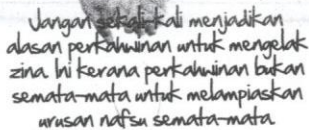 Jangan sekali-kali menjadikan
alasan perkahwinan untuk mengelak
zina. Ini kerana perkahwinan bukan
semata-mata untuk melampiaskan
urusan nafsu semata-mata